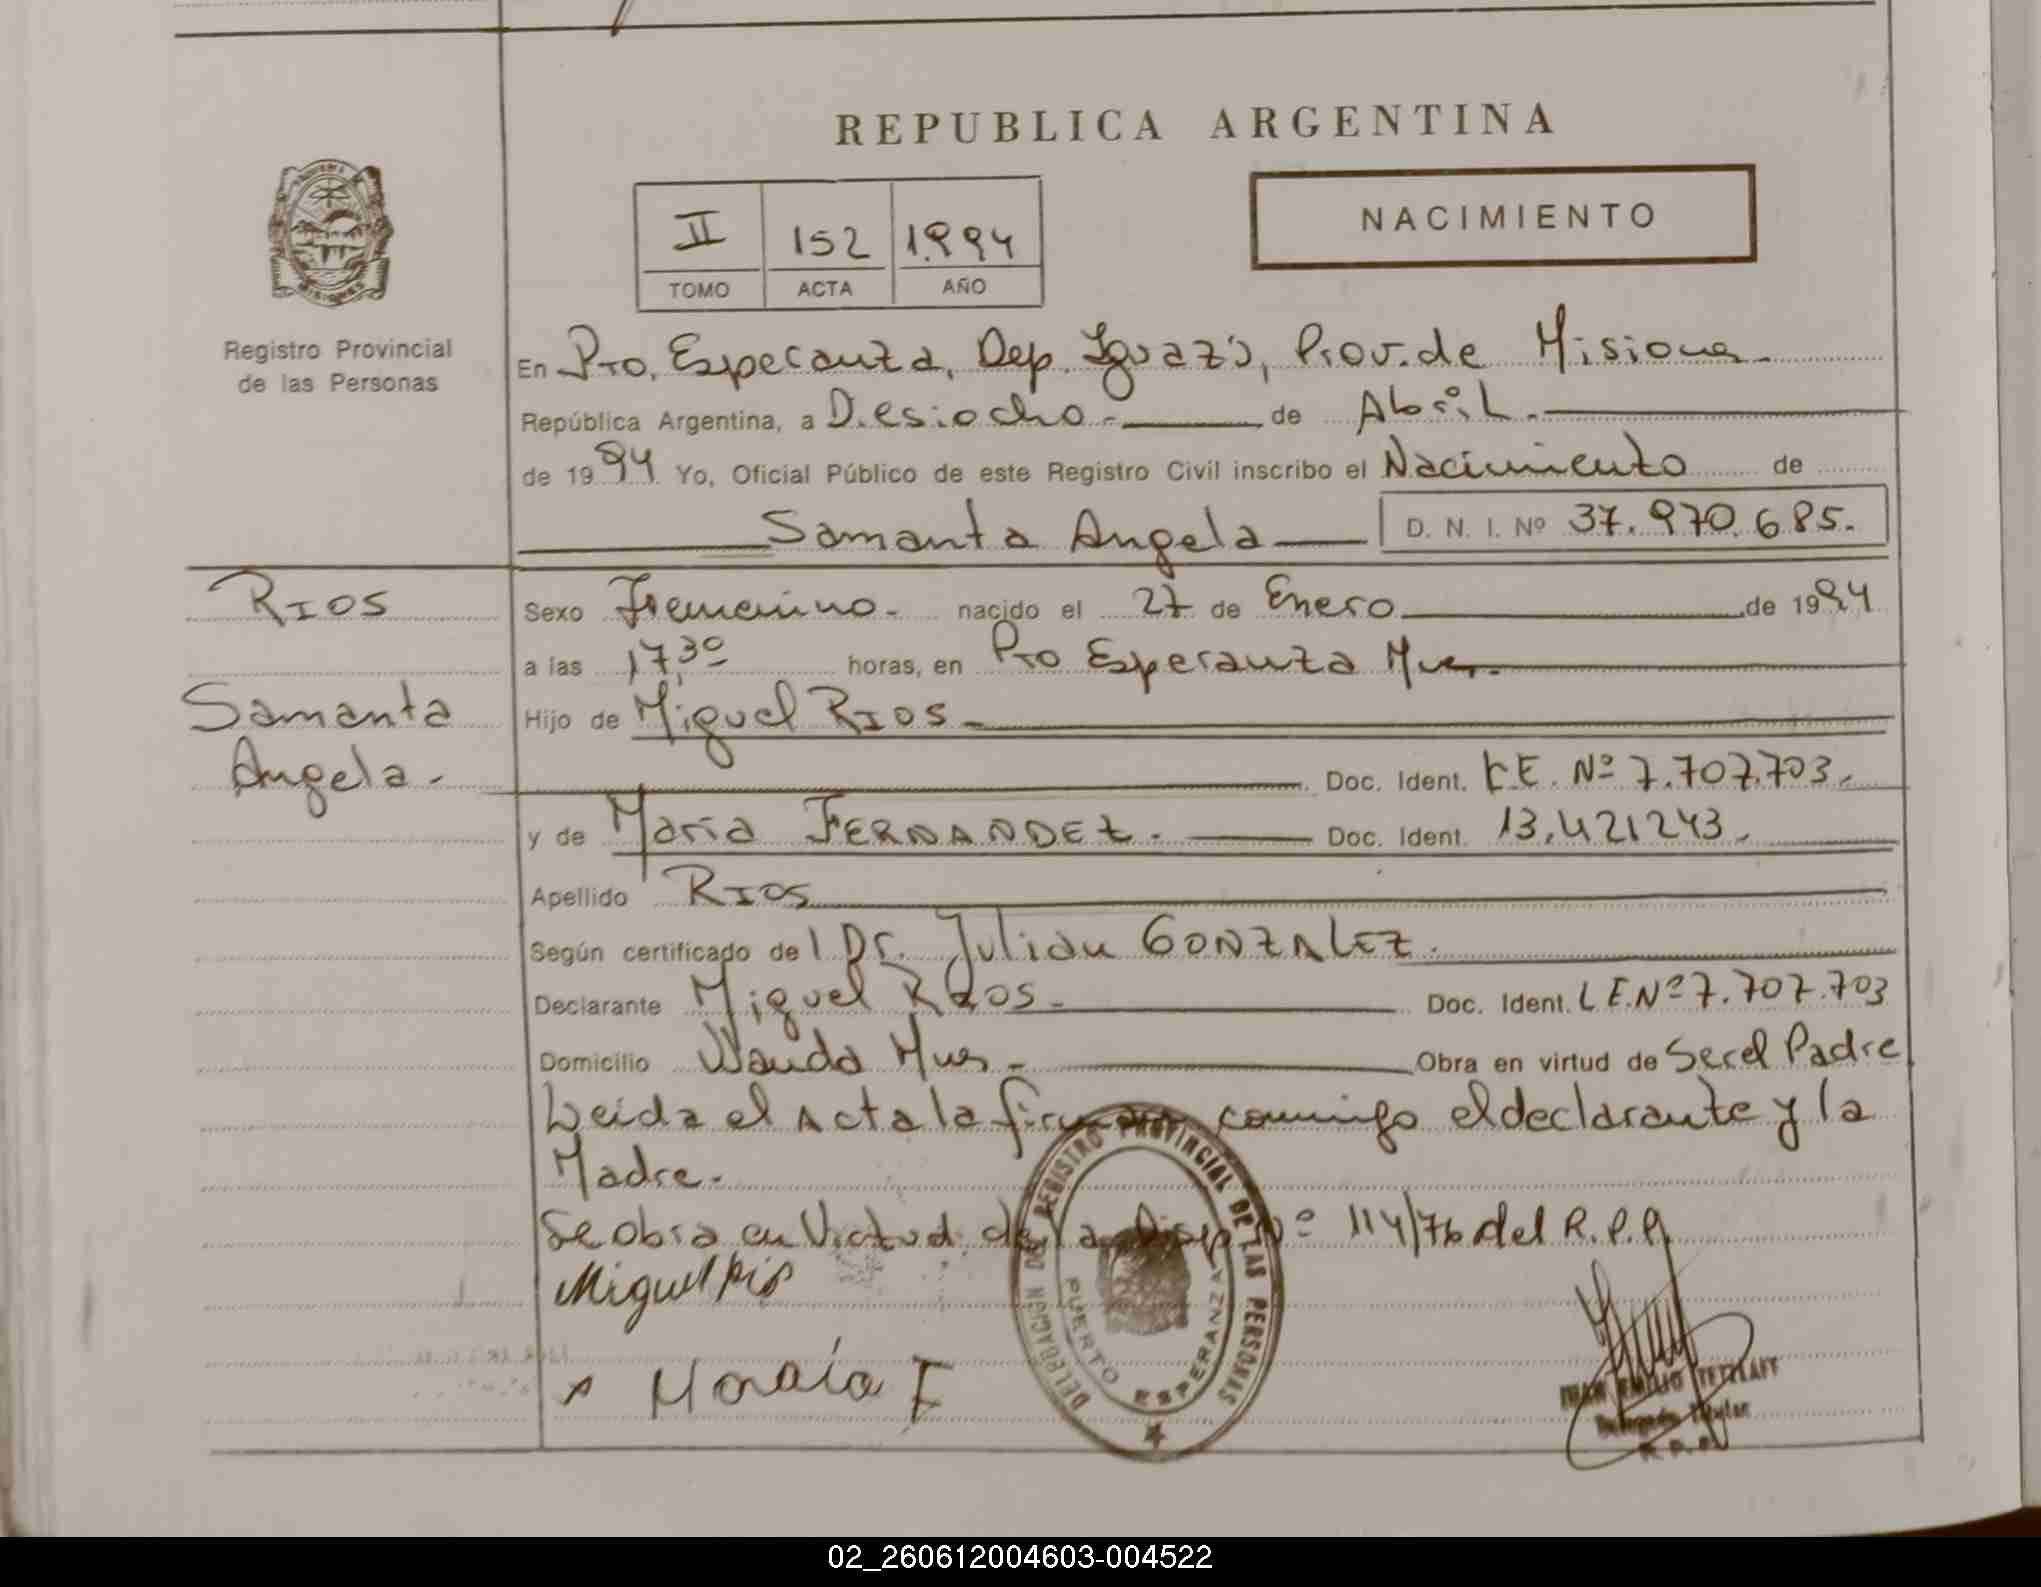 REPUBLICA ARGENTINA
NACIMIENTO
II 152 1.994
TOMO ACTA AÑO
Registro Provincial
de las Personas
En Pto. Esperanza, Dep. Iguazú, Prov. de Misiones
República Argentina, a Diesiocho.- de Abril.-
de 1994 Yo, Oficial Público de este Registro Civil inscribo el Nacimiento de
Samanta Angela D. N. I. Nº 37.970.685.
RIOS
Samanta
Angela.-
Sexo Femenino.- nacido el 27 de Enero de 1994
a las 17,30 horas, en Pto Esperanza Mnes.
Hijo de Miguel RIOS.-
Doc. Ident. L.E. Nº 7.707.703.-
y de María FERNANDEZ.- Doc. Ident. 13.421243.
Apellido RIOS
Según certificado del Dr. Julian GONZALEZ.
Declarante Miguel RIOS.- Doc. Ident. L E.Nº 7.707.703
Domicilio Wanda Mnes.- Obra en virtud de Ser el Padre
Leida el Acta la firman conmigo el declarante y la
Madre.-
Se obra en Virtud de la Disp Nº 114/76 del R.P.P.
Miguel Rios
x María F
DELEGACION DEL REGISTRO PROVINCIAL DE LAS PERSONAS
PUERTO ESPERANZA
JUAN EMILIO TETZLAFF
Delegado Titular
R. P. P.
02_260612004603-004522